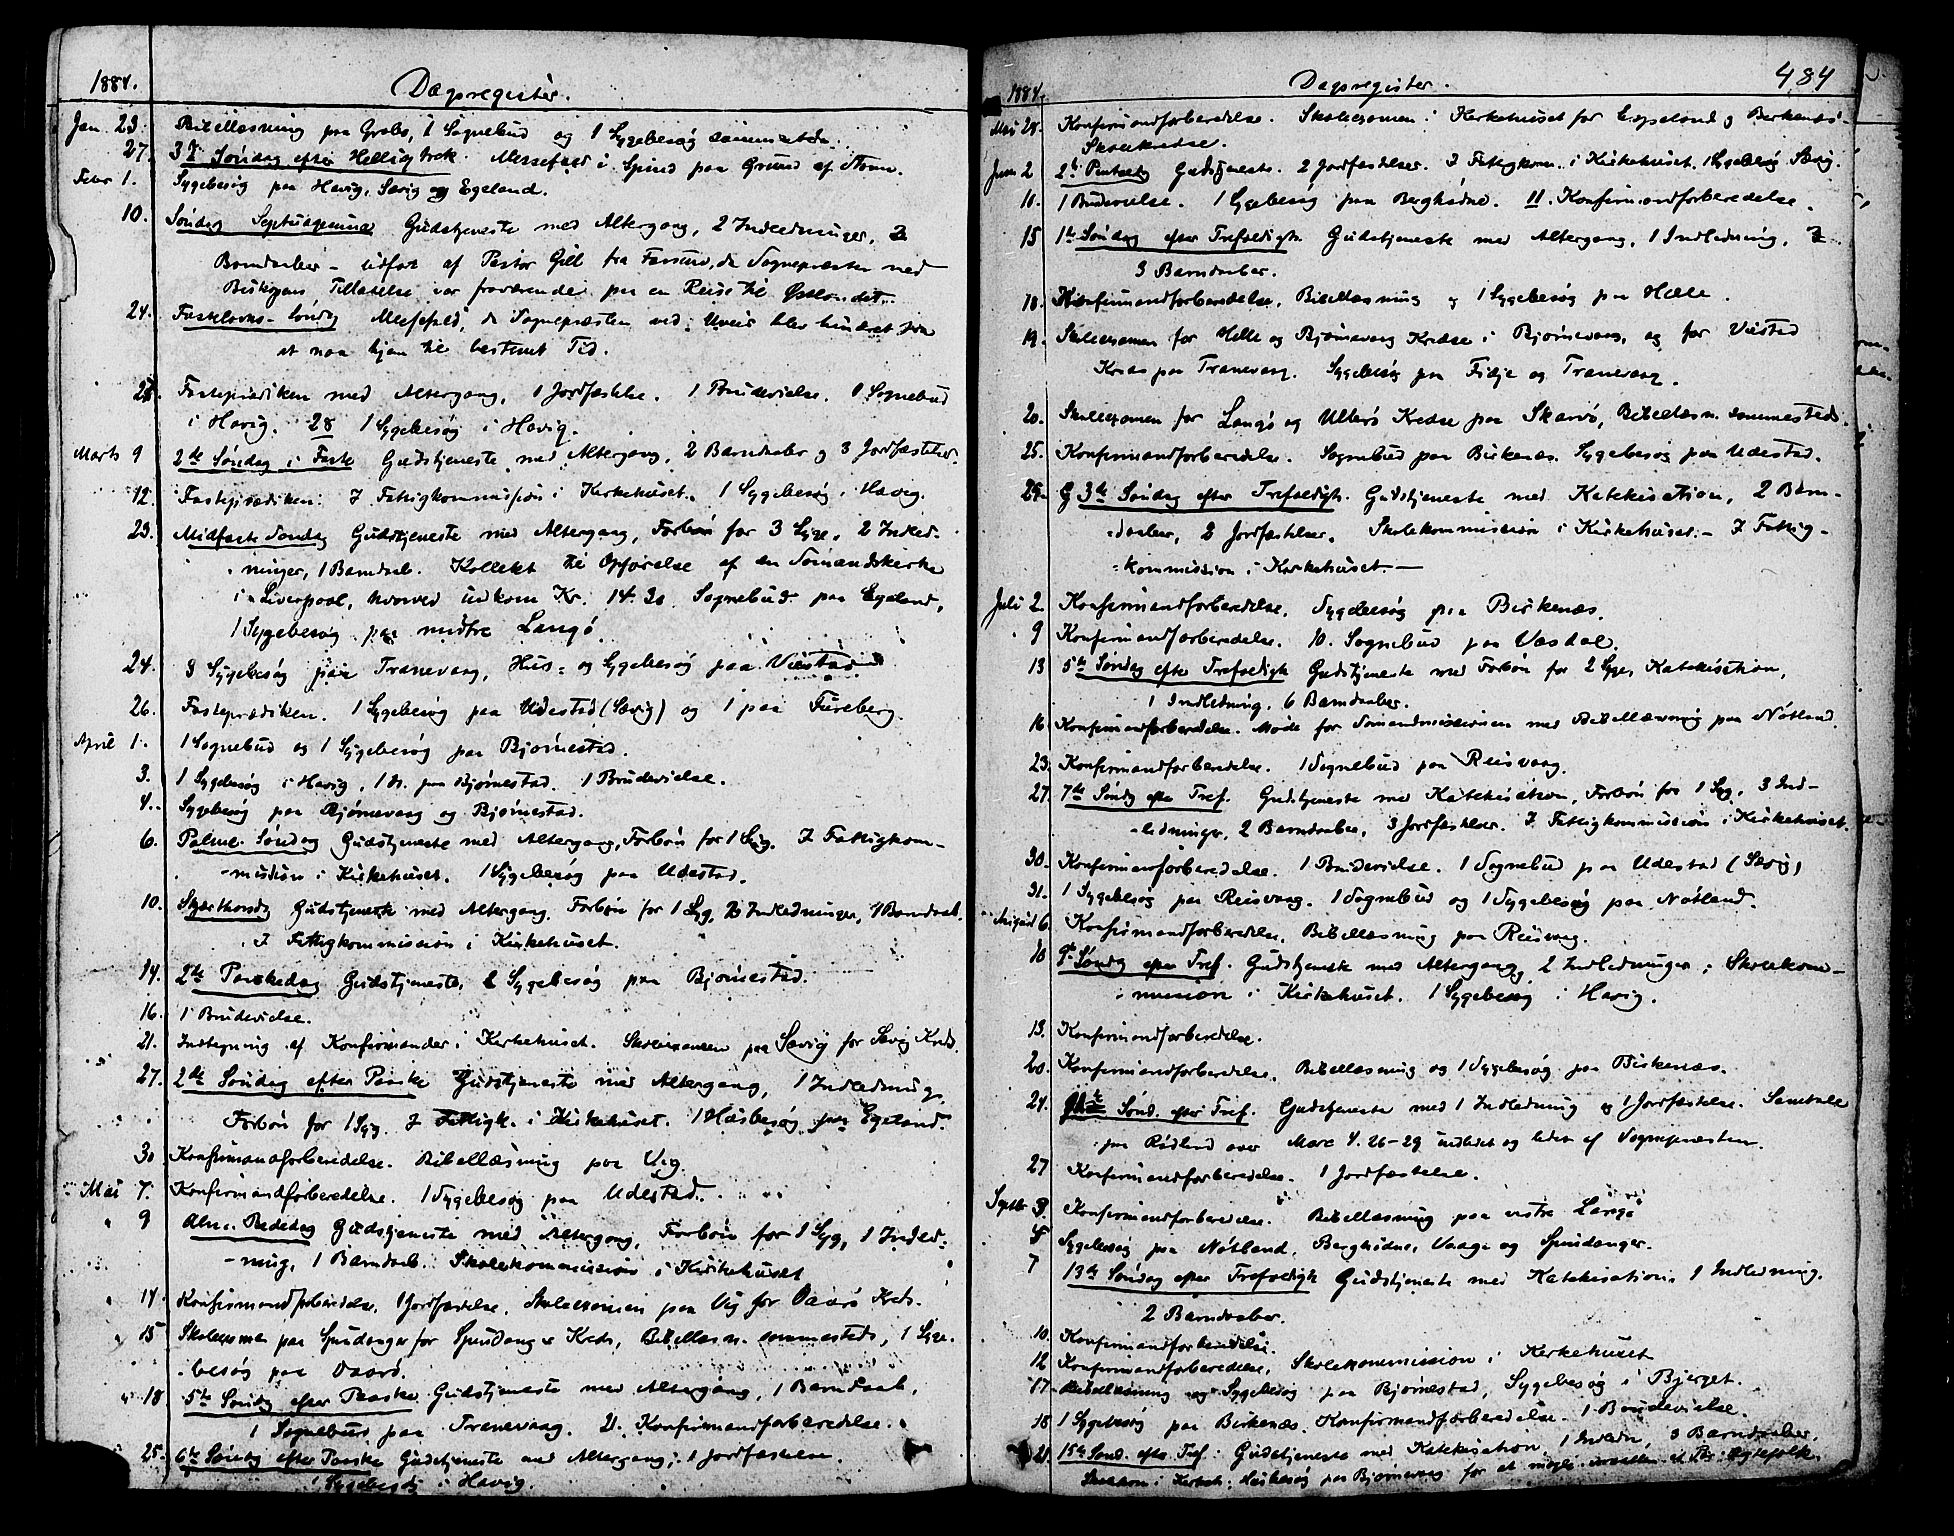 1884.
Dagsregister.
Jan. 23. Bibellæsning paa 1 Sognebud og 1 Sygebesøg sammesteds.
27. 3d Søndag efter Helligtrek. Messefald i Spind paa Grund af Storm.
Febr 1. Sygebesøg paa Havig, Sævig og Egeland.
10. Søndag Septuagesima Gudstjeneste med Altergang, 2 Indledninger, 2
Barndaaber – udført af Pastor Gill fra Farsund, da Sognepræsten med
Biskopens Tilladelse var fraværende paa en Reise til Østlandet.
24. Fastelavns-Søndag Messefald, da Sognepræsten ved Uveir blev hindret fra
at naa hjem til bestemt Tid.
27. Fasteprædiken med Altergang, 1 Jordfæstelse. 1 Brudevielse. 1 Sognebud
i Havig. 28 1 Sygebesøg i Havig.
Marts 9 2de Søndag i Faste Gudstjeneste med Altergang, 2 Barndaaber og 3 Jordfæstelser.
12. Fasteprædiken. 7 Fattigkommission i Kirkehuset. 1 Sygebesøg i Havig.
23. Midfaste Søndag Gudstjeneste med Altergang, Forbøn for 3 Syge, 2 Indled-
ninger, 1 Barndaab. Kollekt til Opførelse af en Sømandskirke
i Liverpool, hvorved indkom Kr. 14.30 Sognebud paa Egeland,
1 Sygebesøg paa midtre Langø.
24. 3 Sygebesøg paa Tranevaag, Hus- og Sygebesøg paa Viestad
26. Fasteprædiken. 1 Sygebesøg paa Udestad (Sævig) og 1 paa Fureberg.
April 1. 1 Sognebud og 1 Sygebesøg paa Bjørnestad.
3. 1 Sygebesøg i Havig, 1 do. paa Bjørnestad. 1 Brudevielse.
4. Sygebesøg paa Bjørnevaag og Bjørnestad.
6. Palme-Søndag Gudstjeneste med Altergang, Forbøn for 1 Syg. 7 Fattigkom-
mission i Kirkehuset. 1 Sygebesøg paa Udestad.
10. Skjærthorsdag Gudstjeneste med Altergang. Forbøn for 1 Syg, Indledninger, 1 Barndaab.
7 Fattigkommission i Kirkehuset.
14. 2de Paaskedag Gudstjeneste, Sygebesøg paa Bjørnestad.
16. 1 Brudevielse.
21. Indtegning af Konfirmander i Kirkehuset. Skoleexamen paa Sævig for Sævig Kreds.
27. 2de Søndag efter Paaske Gudstjeneste med Altergang, 1 Indledning
Forbøn for 1 Syg. 7 Fattigk. i Kirkehuset. 1 Husbesøg paa Egeland.
30. Konfirmandforberedelse. Bibellæsning paa Vig.
Mai 7. Konfirmandforberedelse. 1 Sygebesøg paa Udestad.
9 Alm. Bededag Gudstjeneste med Altergang, Forbøn for 1 Syg, 1 Indled-
ning, 1 Barndaab. Skolekommission i Kirkehuset
14. Konfirmandforberedelse, 1 Jordfæstelse. Skoleexamen paa Vig for Daarø Kreds.
15 Skoleexamen paa Spindanger for Spindanger Kreds, Bibellæsn. sammesteds, 1 Syge-
besøg paa Daarø.
18 5te Søndag efter Paaske Gudstjeneste med Altergang, 1 Barndaab,
1 Sognebud paa Tranevaag. 21. Konfirmandforberedelse.
25. 6te Søndag efter Paaske Gudstjeneste med Altergang, 1 Jordfæstelse.
1 Sygebesøg i Havig.
1884.
Dagsregister.
484
Mai 28. Konfirmandforberedelse. Skoleexamen i Kirkehuset for og Birkenæs
Skolekredse.
Juni 2 2d Pintsedag Gudstjeneste. 2 Jordfæstelser. 7 Fattigkom. i Kirkehuset. 1 Sygebesøg Sævig.
11. 1 Brudevielse. 1 Sygebesøg paa Berghidne. 11. Konfirmandforberedelse.
15 1te Søndag efter Trefoldigh. Gudstjeneste med Altergang, 1 Indledning,
3 Barndaaber.
18. Konfirmandforberedelse, Bibellæsning og 1 Sygebesøg paa Helle.
19. Skoleexamen for Helle og Bjørnevaag Kredse i Bjørnevaag, og for Viestad
Kreds paa Tranevaag. Sygebesøg paa Fidje og Tranevaag.
20. Skoleexamen for Langø og Ullerø Kredse paa Skarvø, Bibellæsn. sammesteds.
25. Konfirmandforberedelse. Sognebud paa Birkenæs. Sygebesøg paa Udestad.
29. 3de Søndag efter Trefoldigh. Gudstjeneste med Katekisation, 2 Barn-
daaber, 2 Jordfæstelser. Skolekommission i Kirkehuset. – 7 Fattig-
kommission i Kirkehuset. –
Juli 2. Konfirmandforberedelse. Sygebesøg paa Birkenæs.
9 Konfirmandforberedelse. 10. Sognebud paa Vasdal.
13 5te Søndag efter Trefoldigh Gudstjeneste med Forbøn for 2 Syge, Katekisation,
1 Indledning, 6 Barndaaber.
16 Konfirmandforberedelse. Møde for Sømandsmissionen med Bibellæsning paa Nøtland.
23. Konfirmandforberedelse. 1 Sognebud paa Reisvaag.
27. 7de Søndg efter Tref. Gudstjeneste med Katekisation, Forbøn for 1 Syg, 3 Ind-
ledninger, 2 Barndaaber, 3 Jordfæstelser. 7 Fattigkommission i Kirkehuset.
30. Konfirmandforberedelse. 1 Brudevielse. 1 Sognebud paa Udestad (Sævig)
31. 1 Sygebesøg paa Reisvaag. 1 Sognebud og 1 Sygebesøg paa Nøtland.
August 6. Konfirmandforberedelse, Bibellæsning paa Reisvaag.
10 9de Søndg efter Tref. Gudstjeneste med Altergang, 2 Indledninger, Skolekom-
mission i Kirkehuset. 1 Sygebesøg i Havig.
13. Konfirmandforberedelse.
20. Konfirmandforberedelse. Bibellæsning og 1 Sygebesøg paa Birkenæs.
24. Sønd. efter Tref. Gudstjeneste med 1 Indledning og 1 Jordfæstelse. Samtale
paa Rødland over Marc 4. 26-29 indledet og ledet af Sognepræsten.
27 Konfirmandforberedelse. 1 Jordfæstelse.
Septbr 3. Konfirmandforberedelse. Bibellæsning paa vestre Langø
4 Sygebesøg paa Nøtland, Berghidne, Vaage og Spindanger.
7 13de Søndag efter Trefoldigh Gudstjeneste med Katekisation, 1 Indledning.
2 Barndaaber.
10. Konfirmandforberedelse.
12 Konfirmandforberedelse, Skolekommission i Kirkehuset
17. Bibellæsning og Sygebesøg paa Bjørnestad, Sygebesøg i Bjerget.
18 1 Sygebesøg paa Birkenæs. Konfirmandforberedelse. 1 Brudevielse.
21 15de Sønd. efter Tref. Gudstjeneste med Katekisation, 1 Indledn, 3 Barndaaber,
i Kirkeh; Husbesøg paa Bjørnevaag for at mægle imellem et Par Ægtefolk.